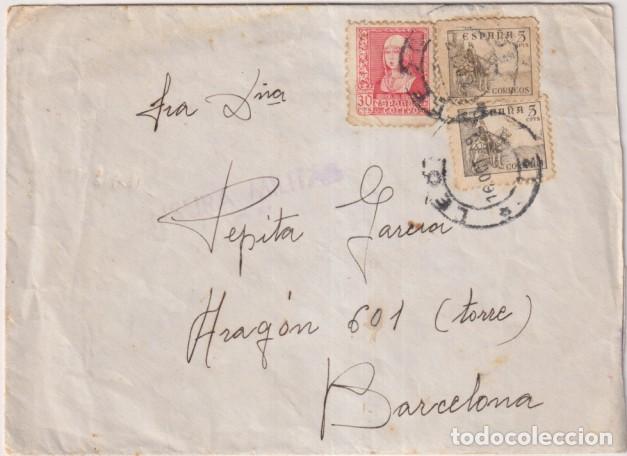 ESPAÑA 5
CTS
CORREOS
30
ESPAÑA
CORREOS
ESPAÑA 5
CTS
LEÓN
16 OCT
Sra Dña
Pepita Garcia
Aragón 601 (torre)
Barcelona
todocoleccion.net